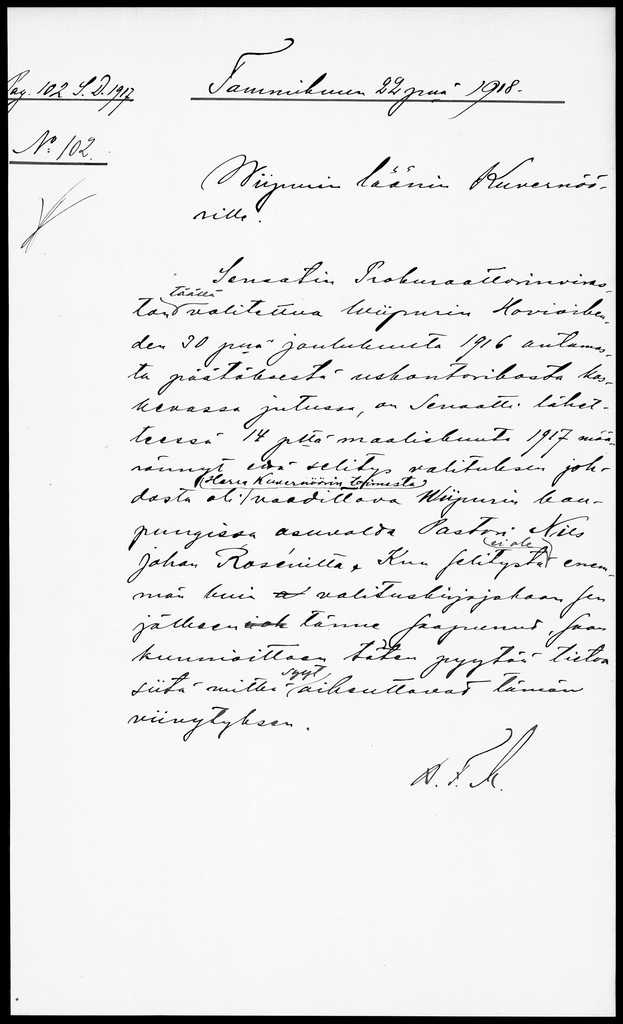 Pag. 102 S.D. 1917
Tammikuun 22 p:nä 1918.
No 102.
Wiipurin läänin Kuvernöö-
rille.
Senaatin Prokuraattorinviras-
täällä
ton valitettua Wiipurin Hovioikeu-
den 30 p:nä joulukuuta 1916 antamas-
ta päätöksestä uskontorikosta kos-
kevassa jutussa, on Senaatti lähet-
teessä 14 p:ltä maaliskuuta 1917 mää-
rännyt että selitys valituksen joh-
(Herra Kuvernöörin toimesta)
dosta oli vaadittava Wiipurin kau-
pungissa asuvalta Pastori Nils
ei ole
Johan Rosénilta. Kun selitystä enem-
män kuin valituskirjojakaan sen
jälkeen tänne saapunut, saan
kunnioittaen täten pyytää tietoa
syyt
siitä mitkä aiheuttavat tämän
viivytyksen.
K. F. M.